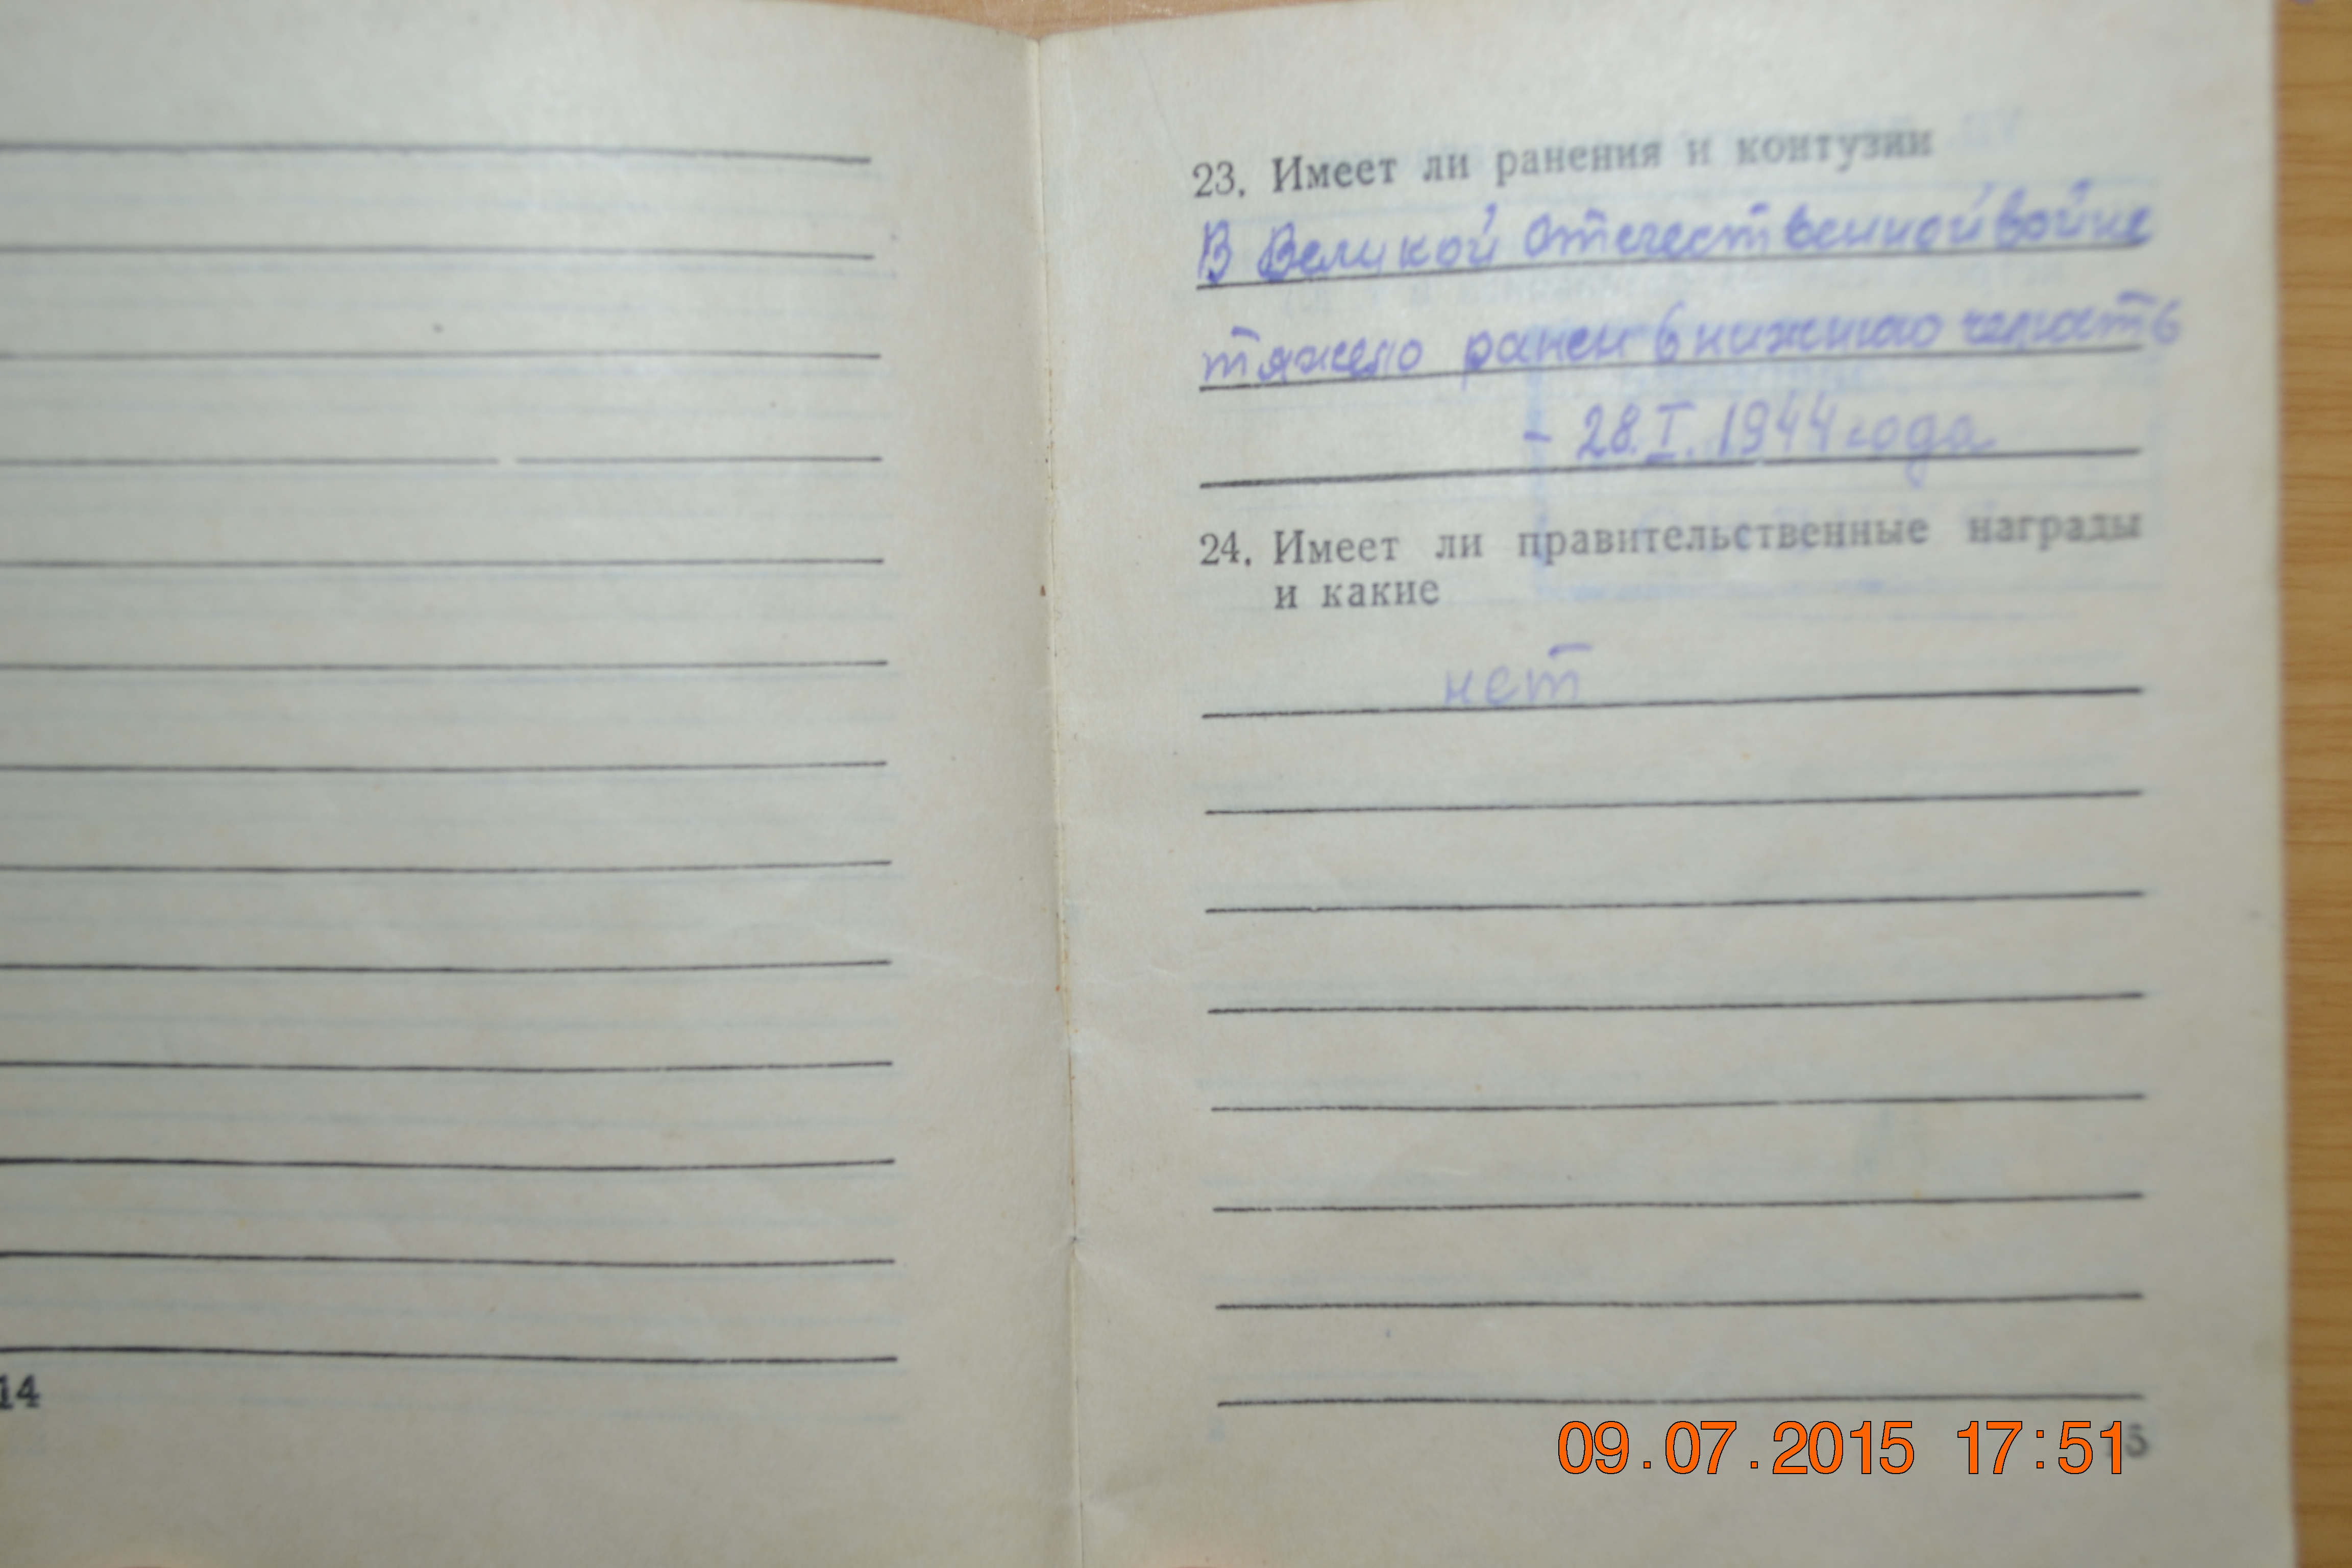 14
23. Имеет ли ранения и контузии
В Великой Отечественной войне
тяжело ранен в нижнюю челюсть
- 28.I.1944 года
24. Имеет ли правительственные награды
и какие
нет
15
09.07.2015 17:51